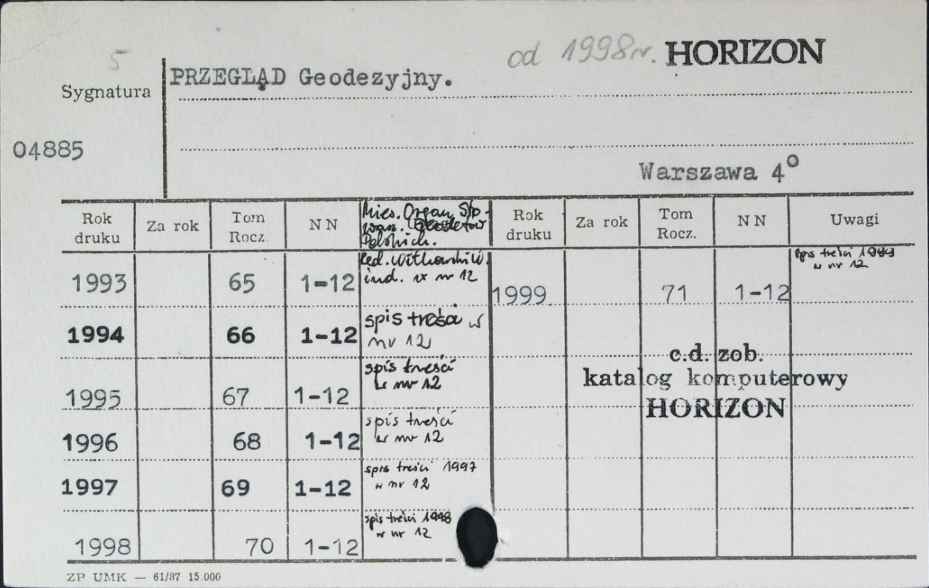 5
od 1998 r. HORIZON
PRZEGLĄD Geodezyjny.
Sygnatura
04885
Warszawa 4°
Rok druku Za rok Tom Rocz. NN Mies. Organ Stowarz. Geodetów Polskich. Rok druku Za rok Tom Rocz. NN Uwagi
1993 65 1-12 Red. ind. w nr 12
1999 71 1-12 spis treści w nr 12
1994 66 1-12 spis treści w nr 12
c.d. zob.
katalog komputerowy
HORIZON
1995 67 1-12 spis treści w nr 12
1996 68 1-12 spis treści w nr 12
1997 69 1-12 spis treści 1997 w nr 12
1998 70 1-12 spis treści 1998 w nr 12
ZP UMK — 61/87 15.000